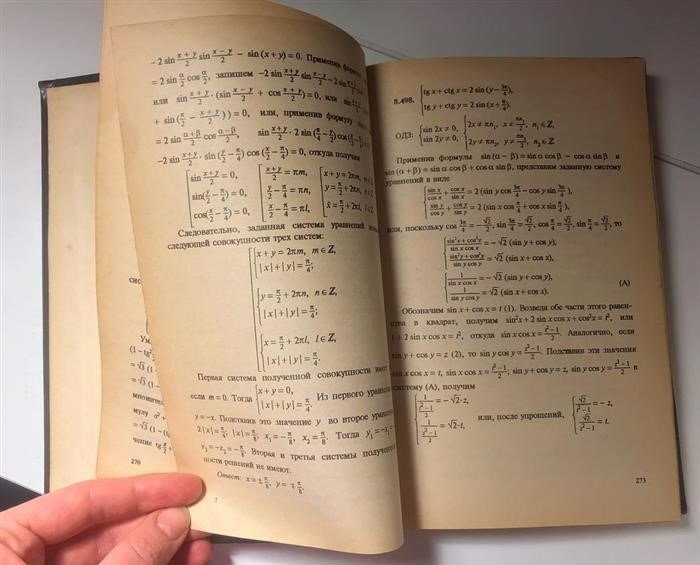 - 2 sin (x+y)/2 sin (x-y)/2 - sin (x+y) = 0. Применив формулу
= 2 sin α/2 cos α/2, запишем -2 sin (x+y)/2 sin (x-y)/2 - 2 sin
или sin (x+y)/2 · (sin (x-y)/2 + cos (x+y)/2) = 0, или sin
+ sin (π/2 - (x+y)/2)) = 0, или, применив формулу
= 2 sin (α+β)/2 cos (α-β)/2, sin (x+y)/2 · 2 sin (π/4 - y/2) cos
-2 sin (x+y)/2 · sin (y/2 - π/4) cos (x/2 - π/4) = 0, откуда получим
{ sin (x+y)/2 = 0, { (x+y)/2 = πm, { x+y = 2πm,
{ sin(y/2 - π/4) = 0, { y/2 - π/4 = πn, { y = π/2 + 2πn,
{ cos(x/2 - π/4) = 0, { x/2 - π/4 = πl, { x = π/2 + 2πl,
Следовательно, заданная система уравнений
следующей совокупности трех систем:
{ x+y = 2πm, m∈Z,
{ |x|+|y| = π/4;
{ y = π/2 + 2πn, n∈Z,
{ |x|+|y| = π/4;
{ x = π/2 + 2πl, l∈Z,
{ |x|+|y| = π/4.
Первая система полученной совокупности имеет
если m = 0. Тогда { x+y = 0, Из первого
{ |x|+|y| = π/4.
y = -x. Подставив это значение y во второе
2|x| = π/4, |x| = π/8, x₁ = -π/8, x₂ = π/8. Тогда y₁ = -x₁
y₂ = -x₂ = -π/8. Вторая и третья системы
ности решений не имеют.
Ответ: x = ± π/8, y = ∓ π/8.
сис
Ум
(1 - tg²
= √3 (1
= √3 (1 -
множител
мулу
= √3 (1 -
чение tg
270
8.498. { tg x + ctg x = 2 sin (y - 3π/4),
{ tg y + ctg y = 2 sin (x + π/4).
ОДЗ: { sin 2x ≠ 0, { 2x ≠ πn₁, x ≠ πn₁/2, n₁∈Z,
{ sin 2y ≠ 0, { 2y ≠ πn₂, y ≠ πn₂/2, n₂∈Z.
Применив формулы sin (α - β) = sin α cos β - cos α sin β и
sin (α + β) = sin α cos β + cos α sin β, представим заданную систему
уравнений в виде
{ sin x/cos x + cos x/sin x = 2 (sin y cos 3π/4 - cos y sin 3π/4),
{ sin y/cos y + cos y/sin y = 2 (sin x cos π/4 + cos x sin π/4),
или, поскольку cos 3π/4 = -√2/2, sin 3π/4 = √2/2, cos π/4 = √2/2, sin π/4 = √2/2, то
{ (sin²x + cos²x)/(sin x cos x) = -√2 (sin y + cos y),
{ (sin²y + cos²y)/(sin y cos y) = √2 (sin x + cos x),
{ 1/(sin x cos x) = -√2 (sin y + cos y), (A)
{ 1/(sin y cos y) = √2 (sin x + cos x).
Обозначим sin x + cos x = t (1). Возведя обе части этого равен-
ства в квадрат, получим sin²x + 2 sin x cos x + cos²x = t², или
1 + 2 sin x cos x = t², откуда sin x cos x = (t²-1)/2. Аналогично, если
sin y + cos y = z (2), то sin y cos y = (z²-1)/2. Подставив эти значения
sin x cos x = t, sin x cos x = (t²-1)/2; sin y + cos y = z, sin y cos y = (z²-1)/2 в
систему (A), получим
{ 1/((t²-1)/2) = -√2·z, или, после упрощений, { √2/(t²-1) = -z,
{ 1/((z²-1)/2) = √2·t, { √2/(z²-1) = t.
273